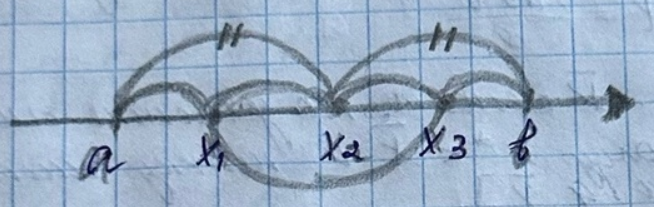 a x₁ x₂ x₃ b